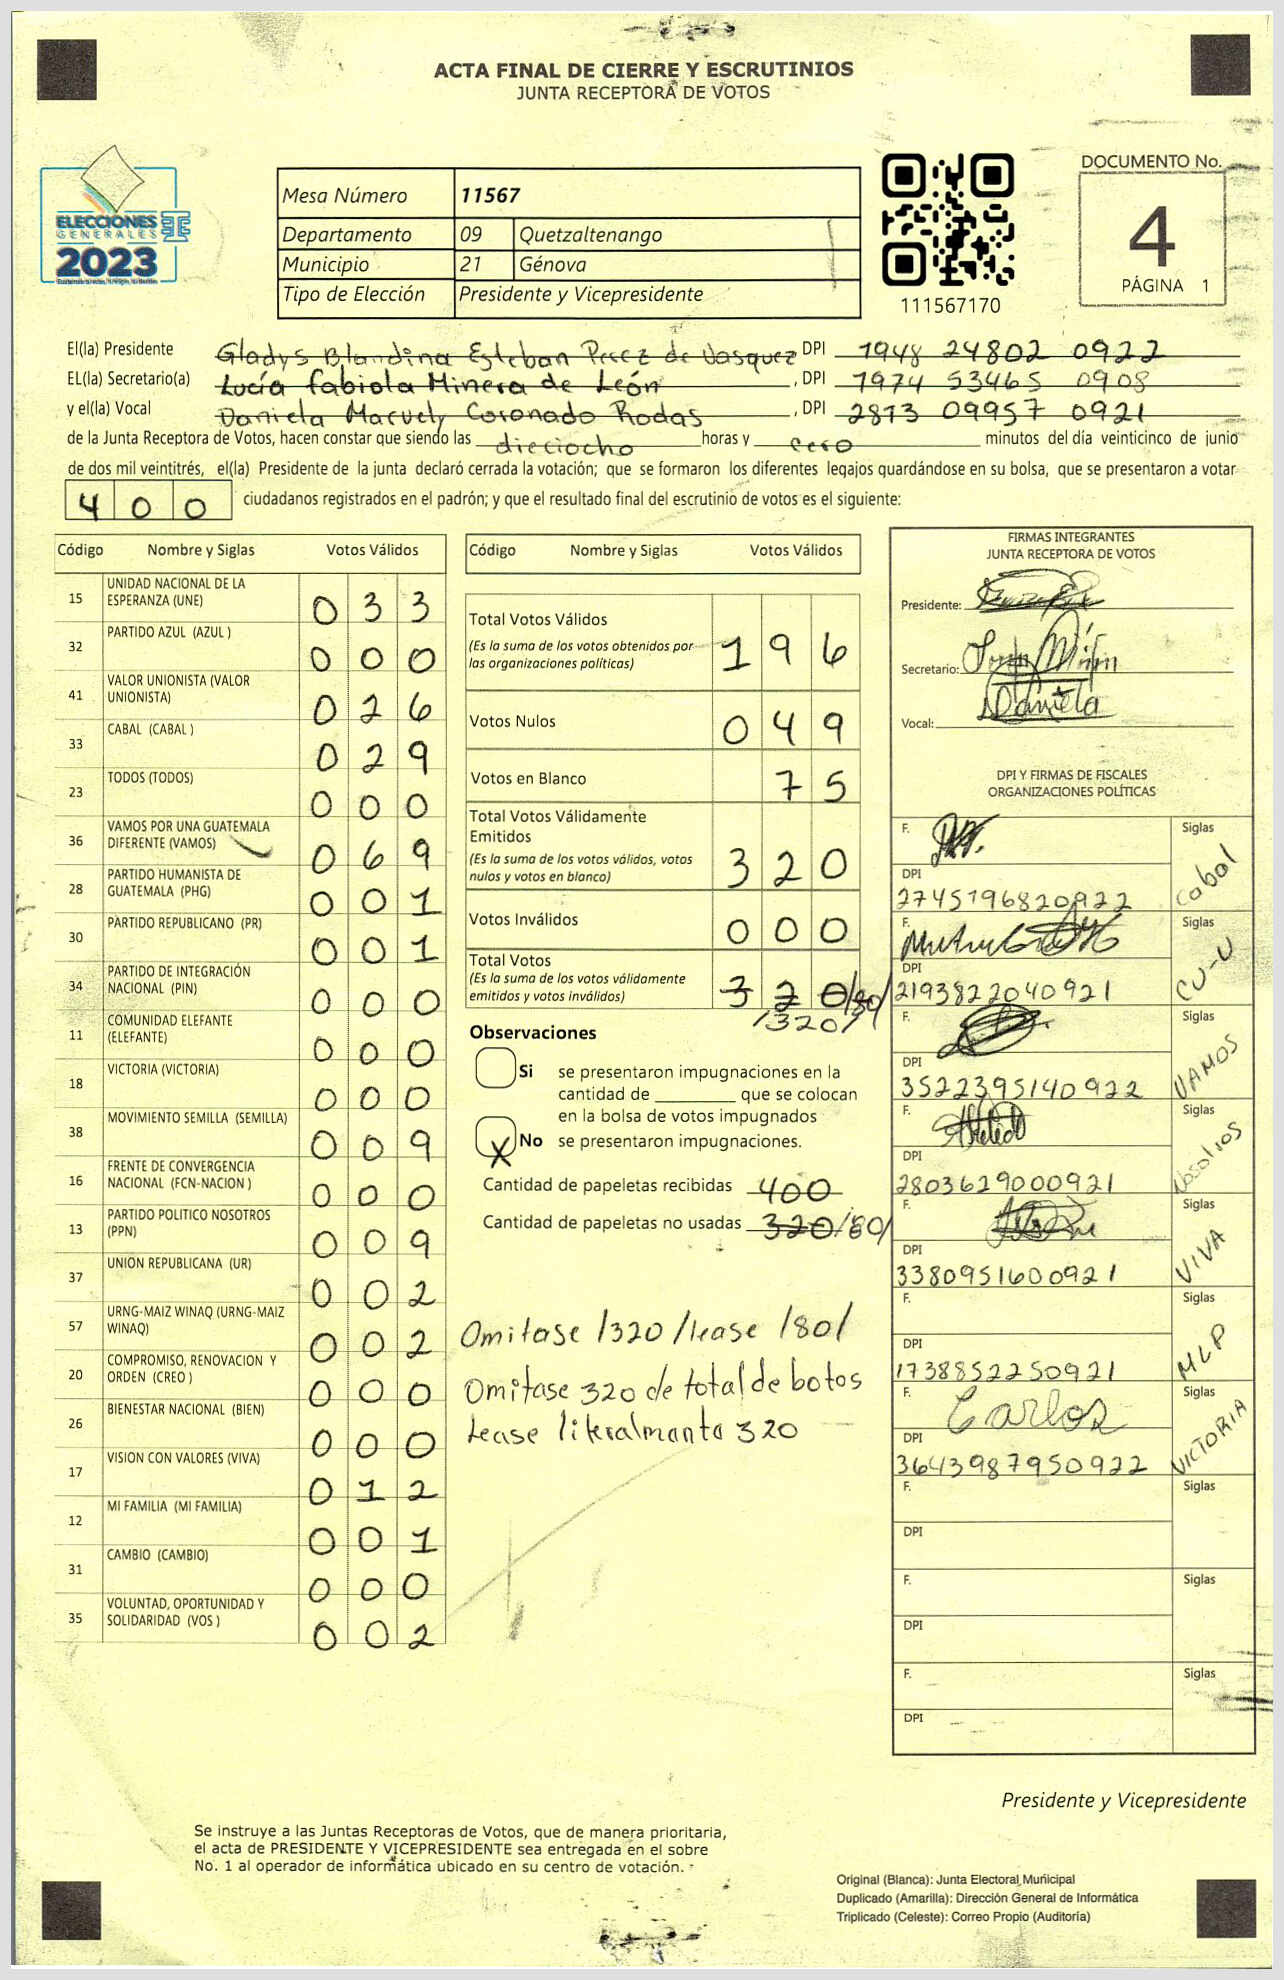 ACTA FINAL DE CIERRE Y ESCRUTINIOS
JUNTA RECEPTORA DE VOTOS
ELECCIONES
GENERALES
2023
Mesa Número 11567
Departamento 09 Quetzaltenango
Municipio 21 Génova
Tipo de Elección Presidente y Vicepresidente
111567170
DOCUMENTO No.
4
PÁGINA 1
El(la) Presidente Gladys Blandina Esteban Perez de Vasquez DPI 1948 24802 0922
EL(la) Secretario(a) Lucía fabiola Minera de León , DPI 1974 53465 0908
y el(la) Vocal Daniela Maruely Coronado Rodas , DPI 2873 09957 0921
de la Junta Receptora de Votos, hacen constar que siendo las dieciocho horas y cero minutos del día veinticinco de junio
de dos mil veintitrés, el(la) Presidente de la junta declaró cerrada la votación; que se formaron los diferentes legajos quardándose en su bolsa, que se presentaron a votar
400 ciudadanos registrados en el padrón; y que el resultado final del escrutinio de votos es el siguiente:
Código Nombre y Siglas Votos Válidos
15 UNIDAD NACIONAL DE LA ESPERANZA (UNE) 033
32 PARTIDO AZUL (AZUL ) 000
41 VALOR UNIONISTA (VALOR UNIONISTA) 026
33 CABAL (CABAL ) 029
23 TODOS (TODOS) 000
36 VAMOS POR UNA GUATEMALA DIFERENTE (VAMOS) 069
28 PARTIDO HUMANISTA DE GUATEMALA (PHG) 001
30 PARTIDO REPUBLICANO (PR) 001
34 PARTIDO DE INTEGRACIÓN NACIONAL (PIN) 000
11 COMUNIDAD ELEFANTE (ELEFANTE) 000
18 VICTORIA (VICTORIA) 000
38 MOVIMIENTO SEMILLA (SEMILLA) 009
16 FRENTE DE CONVERGENCIA NACIONAL (FCN-NACION ) 000
13 PARTIDO POLITICO NOSOTROS (PPN) 009
37 UNION REPUBLICANA (UR) 002
57 URNG-MAIZ WINAQ (URNG-MAIZ WINAQ) 002
20 COMPROMISO, RENOVACION Y ORDEN (CREO ) 000
26 BIENESTAR NACIONAL (BIEN) 000
17 VISION CON VALORES (VIVA) 012
12 MI FAMILIA (MI FAMILIA) 001
31 CAMBIO (CAMBIO) 000
35 VOLUNTAD, OPORTUNIDAD Y SOLIDARIDAD (VOS ) 002
Código Nombre y Siglas Votos Válidos
Total Votos Válidos 196
(Es la suma de los votos obtenidos por las organizaciones políticas)
Votos Nulos 049
Votos en Blanco 75
Total Votos Válidamente Emitidos 320
(Es la suma de los votos válidos, votos nulos y votos en blanco)
Votos Inválidos 000
Total Votos 320
(Es la suma de los votos válidamente emitidos y votos inválidos)
/320/
Observaciones
Si se presentaron impugnaciones en la
cantidad de ________ que se colocan
en la bolsa de votos impugnados
X No se presentaron impugnaciones.
Cantidad de papeletas recibidas 400
Cantidad de papeletas no usadas 320/80/
Omitase /320/lease /80/
Omitase 320 de total de botos
Lease literalmanta 320
FIRMAS INTEGRANTES
JUNTA RECEPTORA DE VOTOS
Presidente:
Secretario:
Vocal: Daniela
DPI Y FIRMAS DE FISCALES
ORGANIZACIONES POLÍTICAS
F. Siglas
DPI Cabal
2745196820922
F. Siglas
DPI CU-U
2193822040921
F. Siglas
DPI VAMOS
3522395140922
F. Siglas
DPI Nosotros
2803629000921
F. Siglas
DPI VIVA
3380951600921
F. Siglas
DPI MLP
1738852250921
F. Carlos Siglas
DPI VICTORIA
3643987950922
F. Siglas
DPI
F. Siglas
DPI
F. Siglas
DPI
Presidente y Vicepresidente
Se instruye a las Juntas Receptoras de Votos, que de manera prioritaria,
el acta de PRESIDENTE Y VICEPRESIDENTE sea entregada en el sobre
No. 1 al operador de informática ubicado en su centro de votación.
Original (Blanca): Junta Electoral Municipal
Duplicado (Amarilla): Dirección General de Informática
Triplicado (Celeste): Correo Propio (Auditoría)